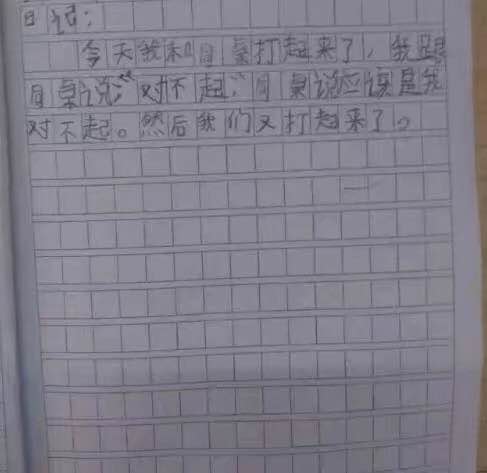 日记：
今天我和同桌打起来了，我跟
同桌说：“对不起，”同桌说应该是我
对不起。然后我们又打起来了。